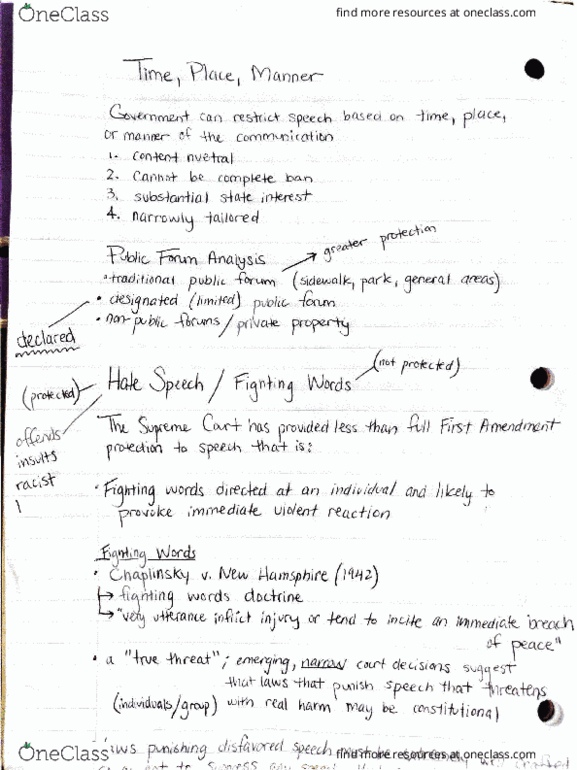 OneClass
find more resources at oneclass.com
Time, Place, Manner
Government can restrict speech based on time, place,
or manner of the communication
1. content nuetral
2. Cannot be complete ban
3. substantial state interest
4. narrowly tailored
Public Forum Analysis
→ greater protection
• traditional public forum (sidewalk, park, general areas)
• designated (limited) public forum
• non-public forums / private property
declared
(not protected)
Hate Speech / Fighting Words
(protected)
offends
insults
racist
The Supreme Court has provided less than full First Amendment
protection to speech that is:
• Fighting words directed at an individual and likely to
provoke immediate violent reaction
Fighting Words
• Chaplinsky v. New Hamsphire (1942)
↳ fighting words doctrine
↳ "very utterance inflict injury or tend to incite an immediate breach
of peace"
• a "true threat"; emerging, narrow court decisions suggest
that laws that punish speech that threatens
(individuals/group) with real harm may be constitutional
OneClass
find more resources at oneclass.com
laws punishing disfavored speech must be